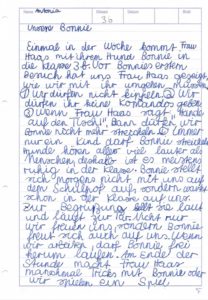 Name: Antonia
30
Unsere Bonnie
Einmal in der Woche kommt Frau
Haas mit ihrem Hund Bonnie in
die Klasse 3b. Vor Bonnies ersten
Besuch hat uns Frau Haas gezeigt,
wie wir mit ihr umgehen müssen.
① Wir dürfen nicht
Wir dürfen ihr keine Komandos geben
③ Wenn Frau Haas sagt „Hände
auf den Tisch", dann dürfen wir
Bonnie nicht mehr streicheln. ④ Immer
nur ein Kind darf Bonnie streicheln
Hunde hören aller viel lauter als
Menschen, deshalb ist es meistens
ruhig in der Klasse. Bonnie stellt
sich morgens nicht mit uns auf
dem Schulhof auf, sondern wartet
schon in der Klasse auf uns.
Zur Begrüßung bellt sie laut
und läuft zur Tür. Nicht nur
wir freuen uns, sondern Bonnie
freut sich auch auf uns. Wenn
wir arbeiten, darf Bonnie frei
herum laufen. Am Ende der
Stunde macht Frau Haas
manchmal Tricks mit Bonnie oder
wir spielen ein Spiel.
5